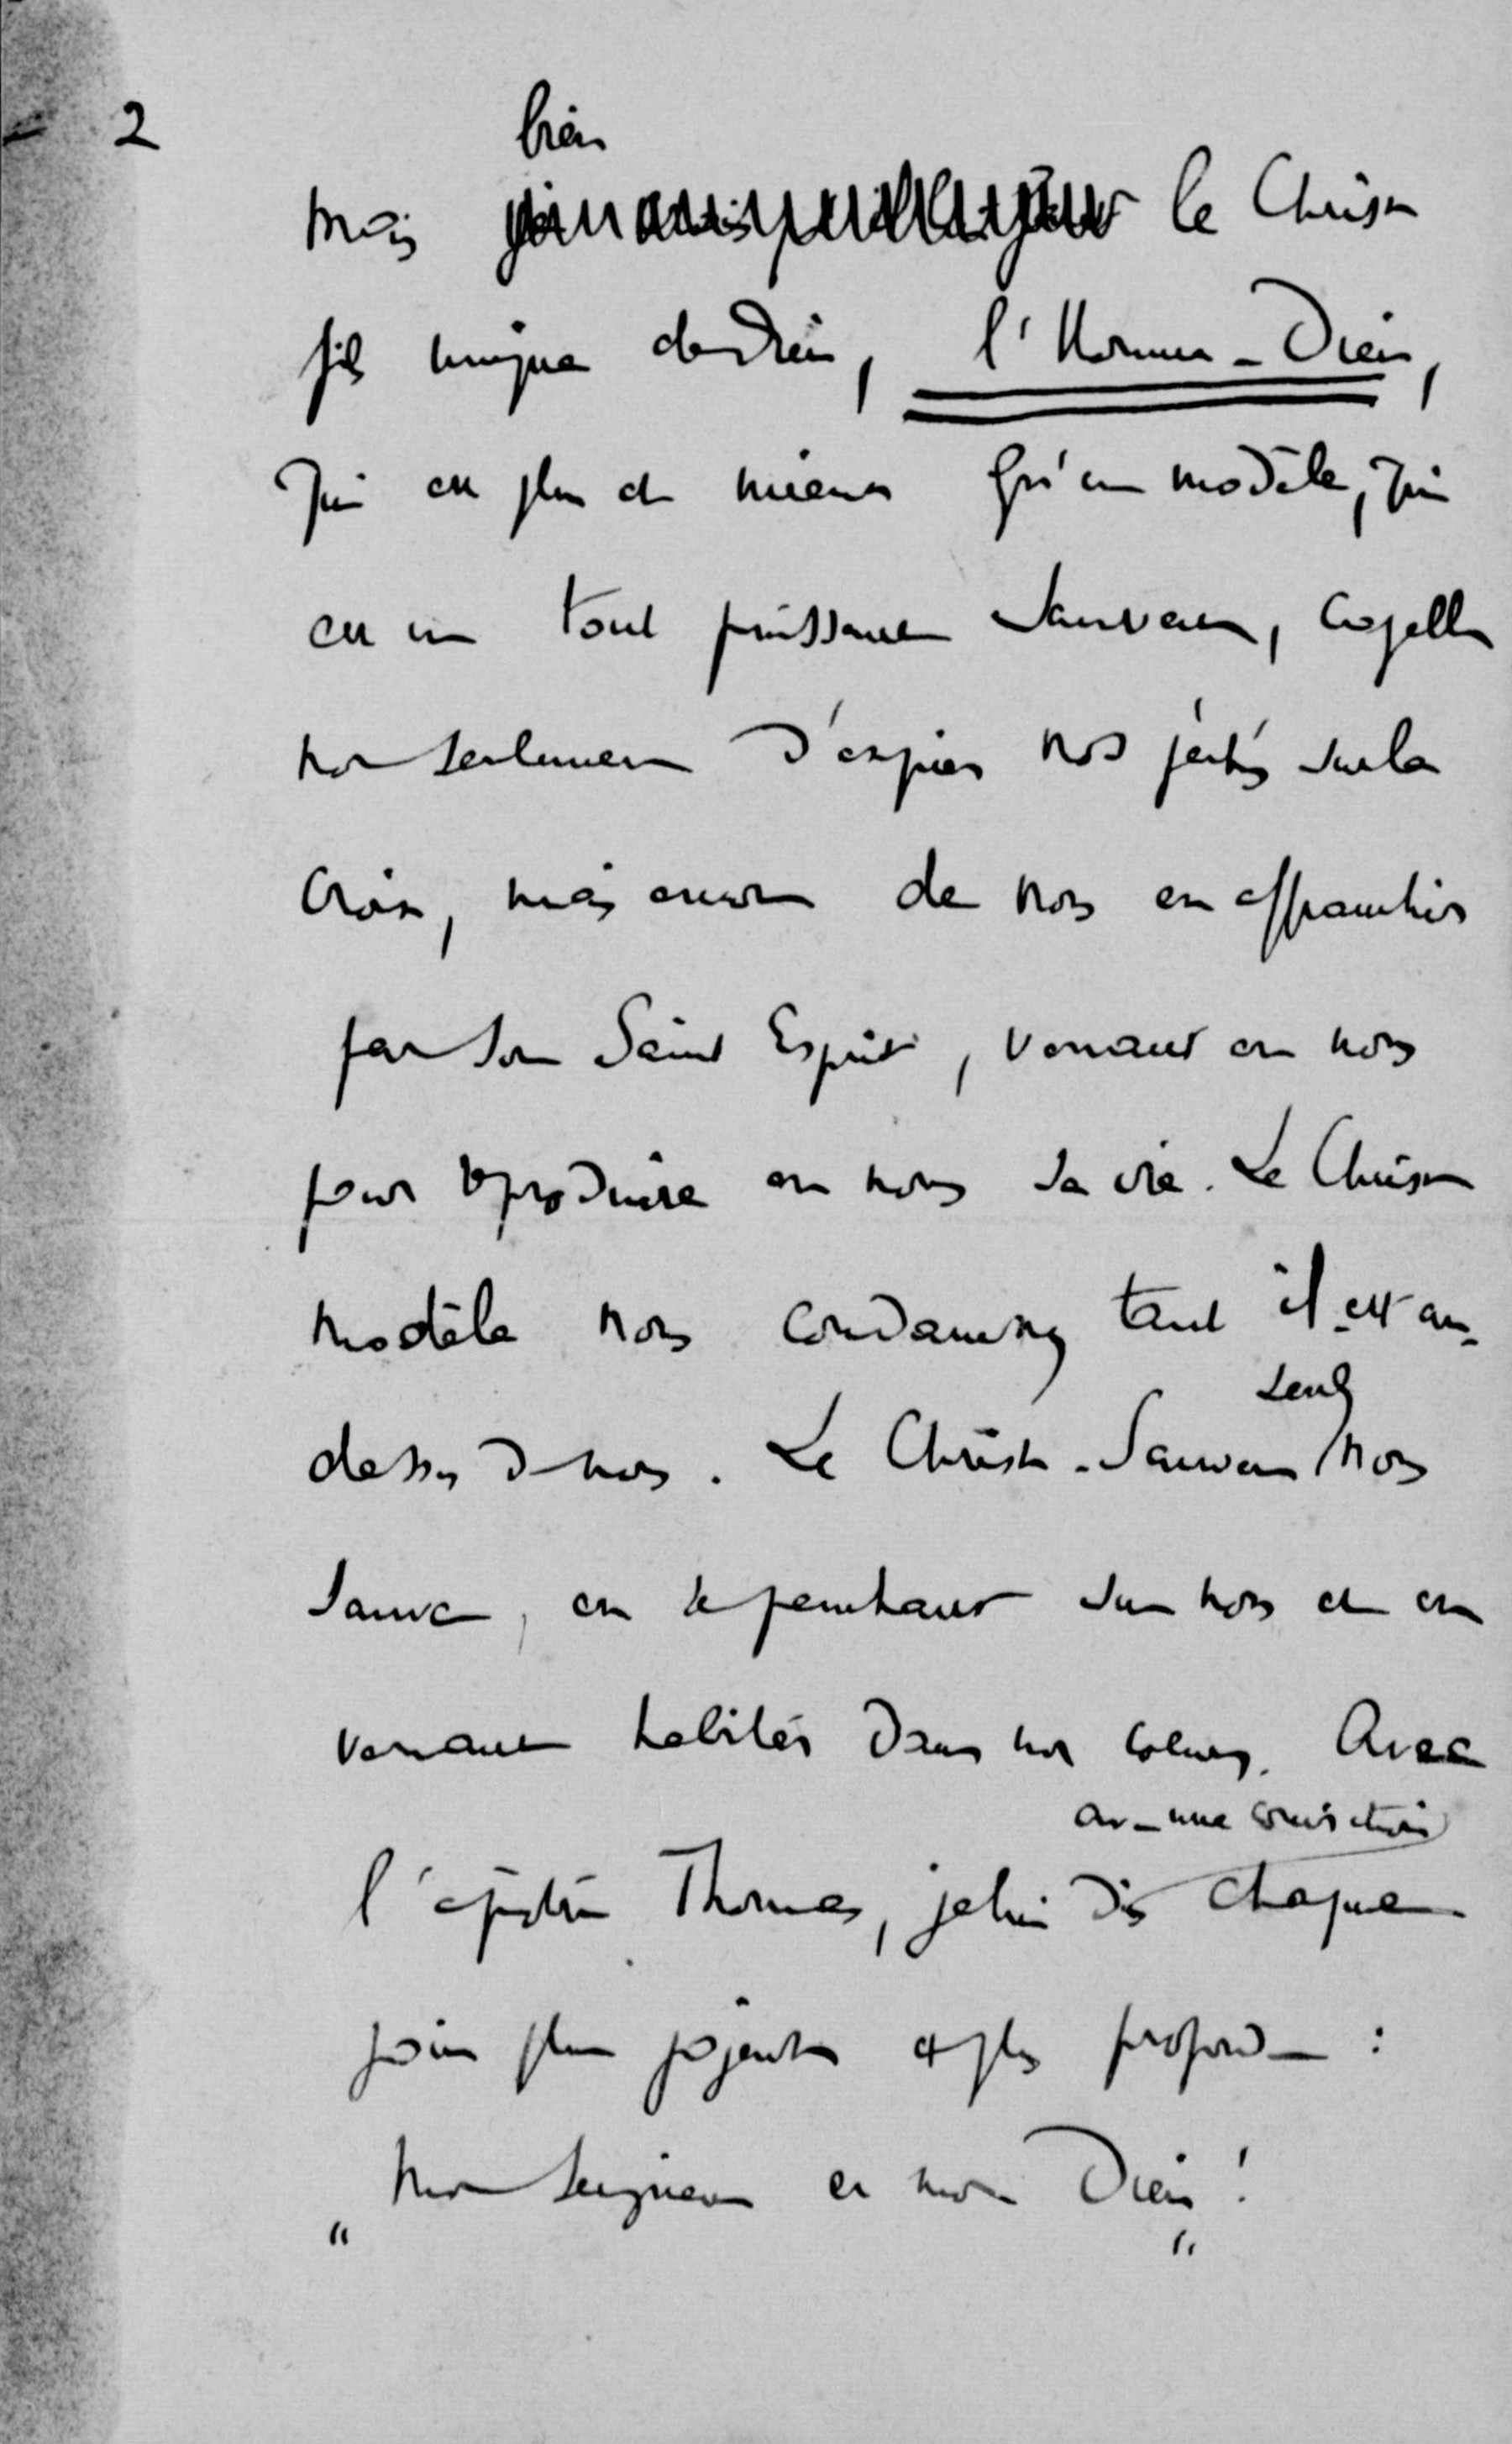 2
bien
mais le Christ
fils unique de Dieu, l'Homme-Dieu,
qui est plus et mieux qu'un modèle, qui
est un tout puissant Sauveur, capable
non seulement d'expier nos péchés sur la
Croix, mais encore de nous en affranchir
par son Saint Esprit, venant en nous
pour reproduire en nous sa vie. Le Christ
modèle nous condamne, tant il est au-
seul
dessus de nous. Le Christ-Sauveur nous
sauve, en se penchant sur nous et en
venant habiter dans nos coeurs. Avec
avec une conviction
l'apôtre Thomas, je lui dis chaque
jour plus joyeuse et plus profonde :
"Mon Seigneur et mon Dieu!"